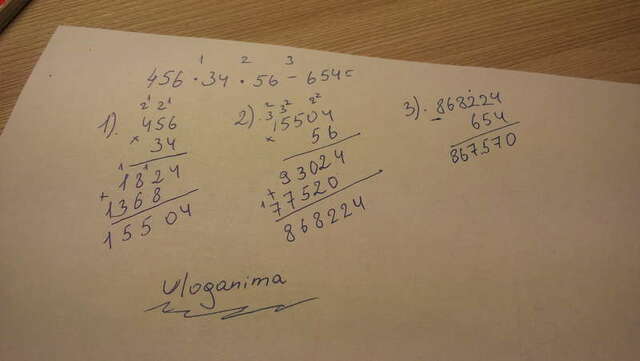 1 2 3
456 · 34 · 56 - 654 =
1).
2 1 2 1
456
× 34
1 1
1824
+ 1368
15504
2).
2 2 2
3 3 2
15504
× 56
93024
+ 1
77520
868224
3).
- 868224
654
867570
Vloganima